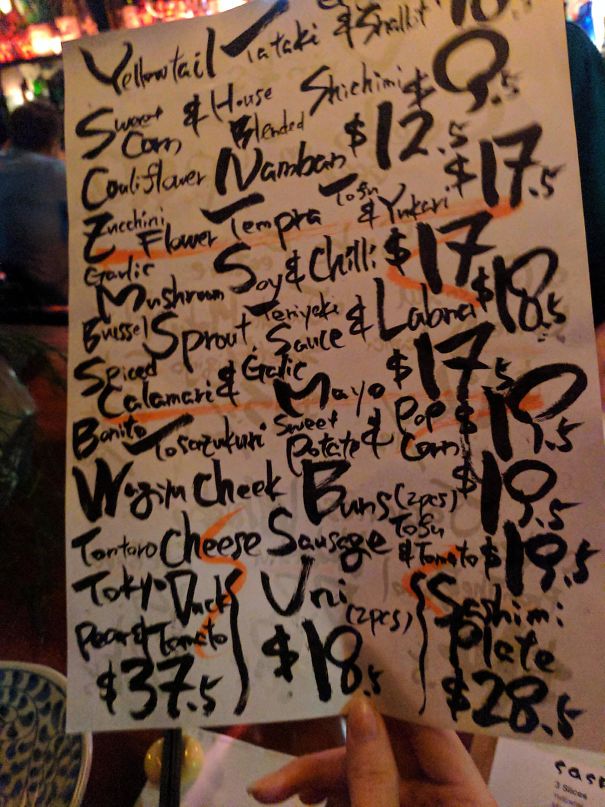 Yellowtail Tataki & Shallot
Sweet Corn & House Blended Shichimi $9.5
Cauliflower Namban $12.5
Zucchini Flower Tempra Tofu & Yukari $17.5
Garlic Mushroom Soy & Chilli $17
Brussel Sprout Teriyaki Sauce & Labna $18.5
Spiced Calamari & Garlic Mayo $17.5
Bonito Tosazukuri Sweet Potate & Pop Corn $19.5
Wagyu Cheek Buns (2pcs) $19.5
Tontoro Cheese Sausage Tofu & Tomato $19.5
Tokyo Duck Pear & Tomato $37.5
Uni (2pcs) $18.5
Sashimi Plate $28.5
3 Slices